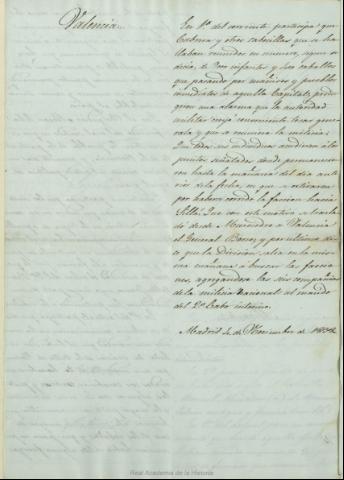 Valencia.
En 1º del corriente participa que
Cabrera y otros cabecillas que se ha
llaban reunidos en numero, segun se
decia, de infantes y caballos
que pasando por pueblos
inmediatos de aquella Capital, produ
geron una alarma que la autoridad
militar creyó conveniente tocar gene
rala y que se reuniera la milicia;
Que todos sus individuos acudieron á los
puntos señalados donde permanecie
ron hasta la mañana del dia ante
rior de la fecha, en que se retiraron
por haberse corrido la faccion hacia
Silla. Que con este motivo se trasla
dó desde Murviedro a Valencia
el General Borso, y por ultimo di
ce que la Division, salia en la mis
ma mañana á buscar las faccio
nes, agregandose las seis compañias
de la milicia Nacional al mando
del 2º Cabo interino.
Madrid 4 de Noviembre de
Real Academia de la Historia